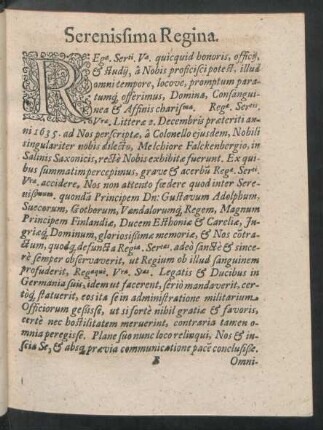 Serenissima Regina.
REgæ. Serti. Væ. quicquid honoris, officij,
& studij, à Nobis proficisci potest, illud
omni tempore, locove, promptum para-
tumq́ offerimus, Domina, Consangui-
nea & Affinis charissma. Regæ. Sertis.
Vræ. Litteræ 2. Decembris præteriti an-
ni 1635. ad Nos perscriptæ, à Colonello ejusdem, Nobili
singulariter nobis dilecto, Melchiore Falckenbergio, in
Salinis Saxonicis, rectè Nobis exhibitæ fuerunt. Ex qui-
bus summatim percepimus, grave & acerbũ Regæ. Serti.
Vræ. accidere, Nos non attento fœdere quod inter Sere-
nissimum. quondã Principem Dn: Gustavum Adolphum,
Suecorum, Gothorum, Vandalorumq́, Regem, Magnum
Principem Finlandiæ, Ducem Esthoniæ & Careliæ, In-
griæq́ Dominum, gloriosissimæ memoriæ, & Nos cõtra-
ctum, quodq́, defuncta Regia. Seretas. adeò sanctè & since-
rè semper observaverit, ut Regium ob illud sanguinem
profuderit, Regaqué, Vra. Stas. Legatis & Ducibus in
Germania suis, idem ut facerent, seriò mandaverit, cer-
toq́, statuerit, eos ita se in administratione militarium
Officiorum gessisse, ut si fortè nihil gratiæ & favoris,
certè nec hostilitatem meruerint, contraria tamen o-
mnia peregisse. Plane suo nunc loco reliqui, Nos & in-
scia Se, & absq́ prævia communicatione pacē conclusisse.
B Omni-